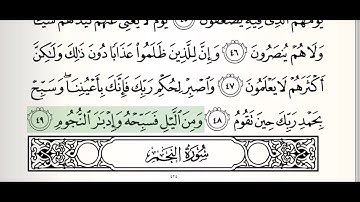 يَوْمَهُمُ ٱلَّذِى فِيهِ يُصْعَقُونَ ﴿٤٥﴾ يَوْمَ لَا يُغْنِى عَنْهُمْ كَيْدُهُمْ شَيْـًٔا
وَلَا هُمْ يُنصَرُونَ ﴿٤٦﴾ وَإِنَّ لِلَّذِينَ ظَلَمُوا۟ عَذَابًا دُونَ ذَٰلِكَ وَلَـٰكِنَّ
أَكْثَرَهُمْ لَا يَعْلَمُونَ ﴿٤٧﴾ وَٱصْبِرْ لِحُكْمِ رَبِّكَ فَإِنَّكَ بِأَعْيُنِنَا ۖ وَسَبِّحْ
بِحَمْدِ رَبِّكَ حِينَ تَقُومُ ﴿٤٨﴾ وَمِنَ ٱلَّيْلِ فَسَبِّحْهُ وَإِدْبَـٰرَ ٱلنُّجُومِ ﴿٤٩﴾
سُورَةُ النَّجْمِ
٥٢٤